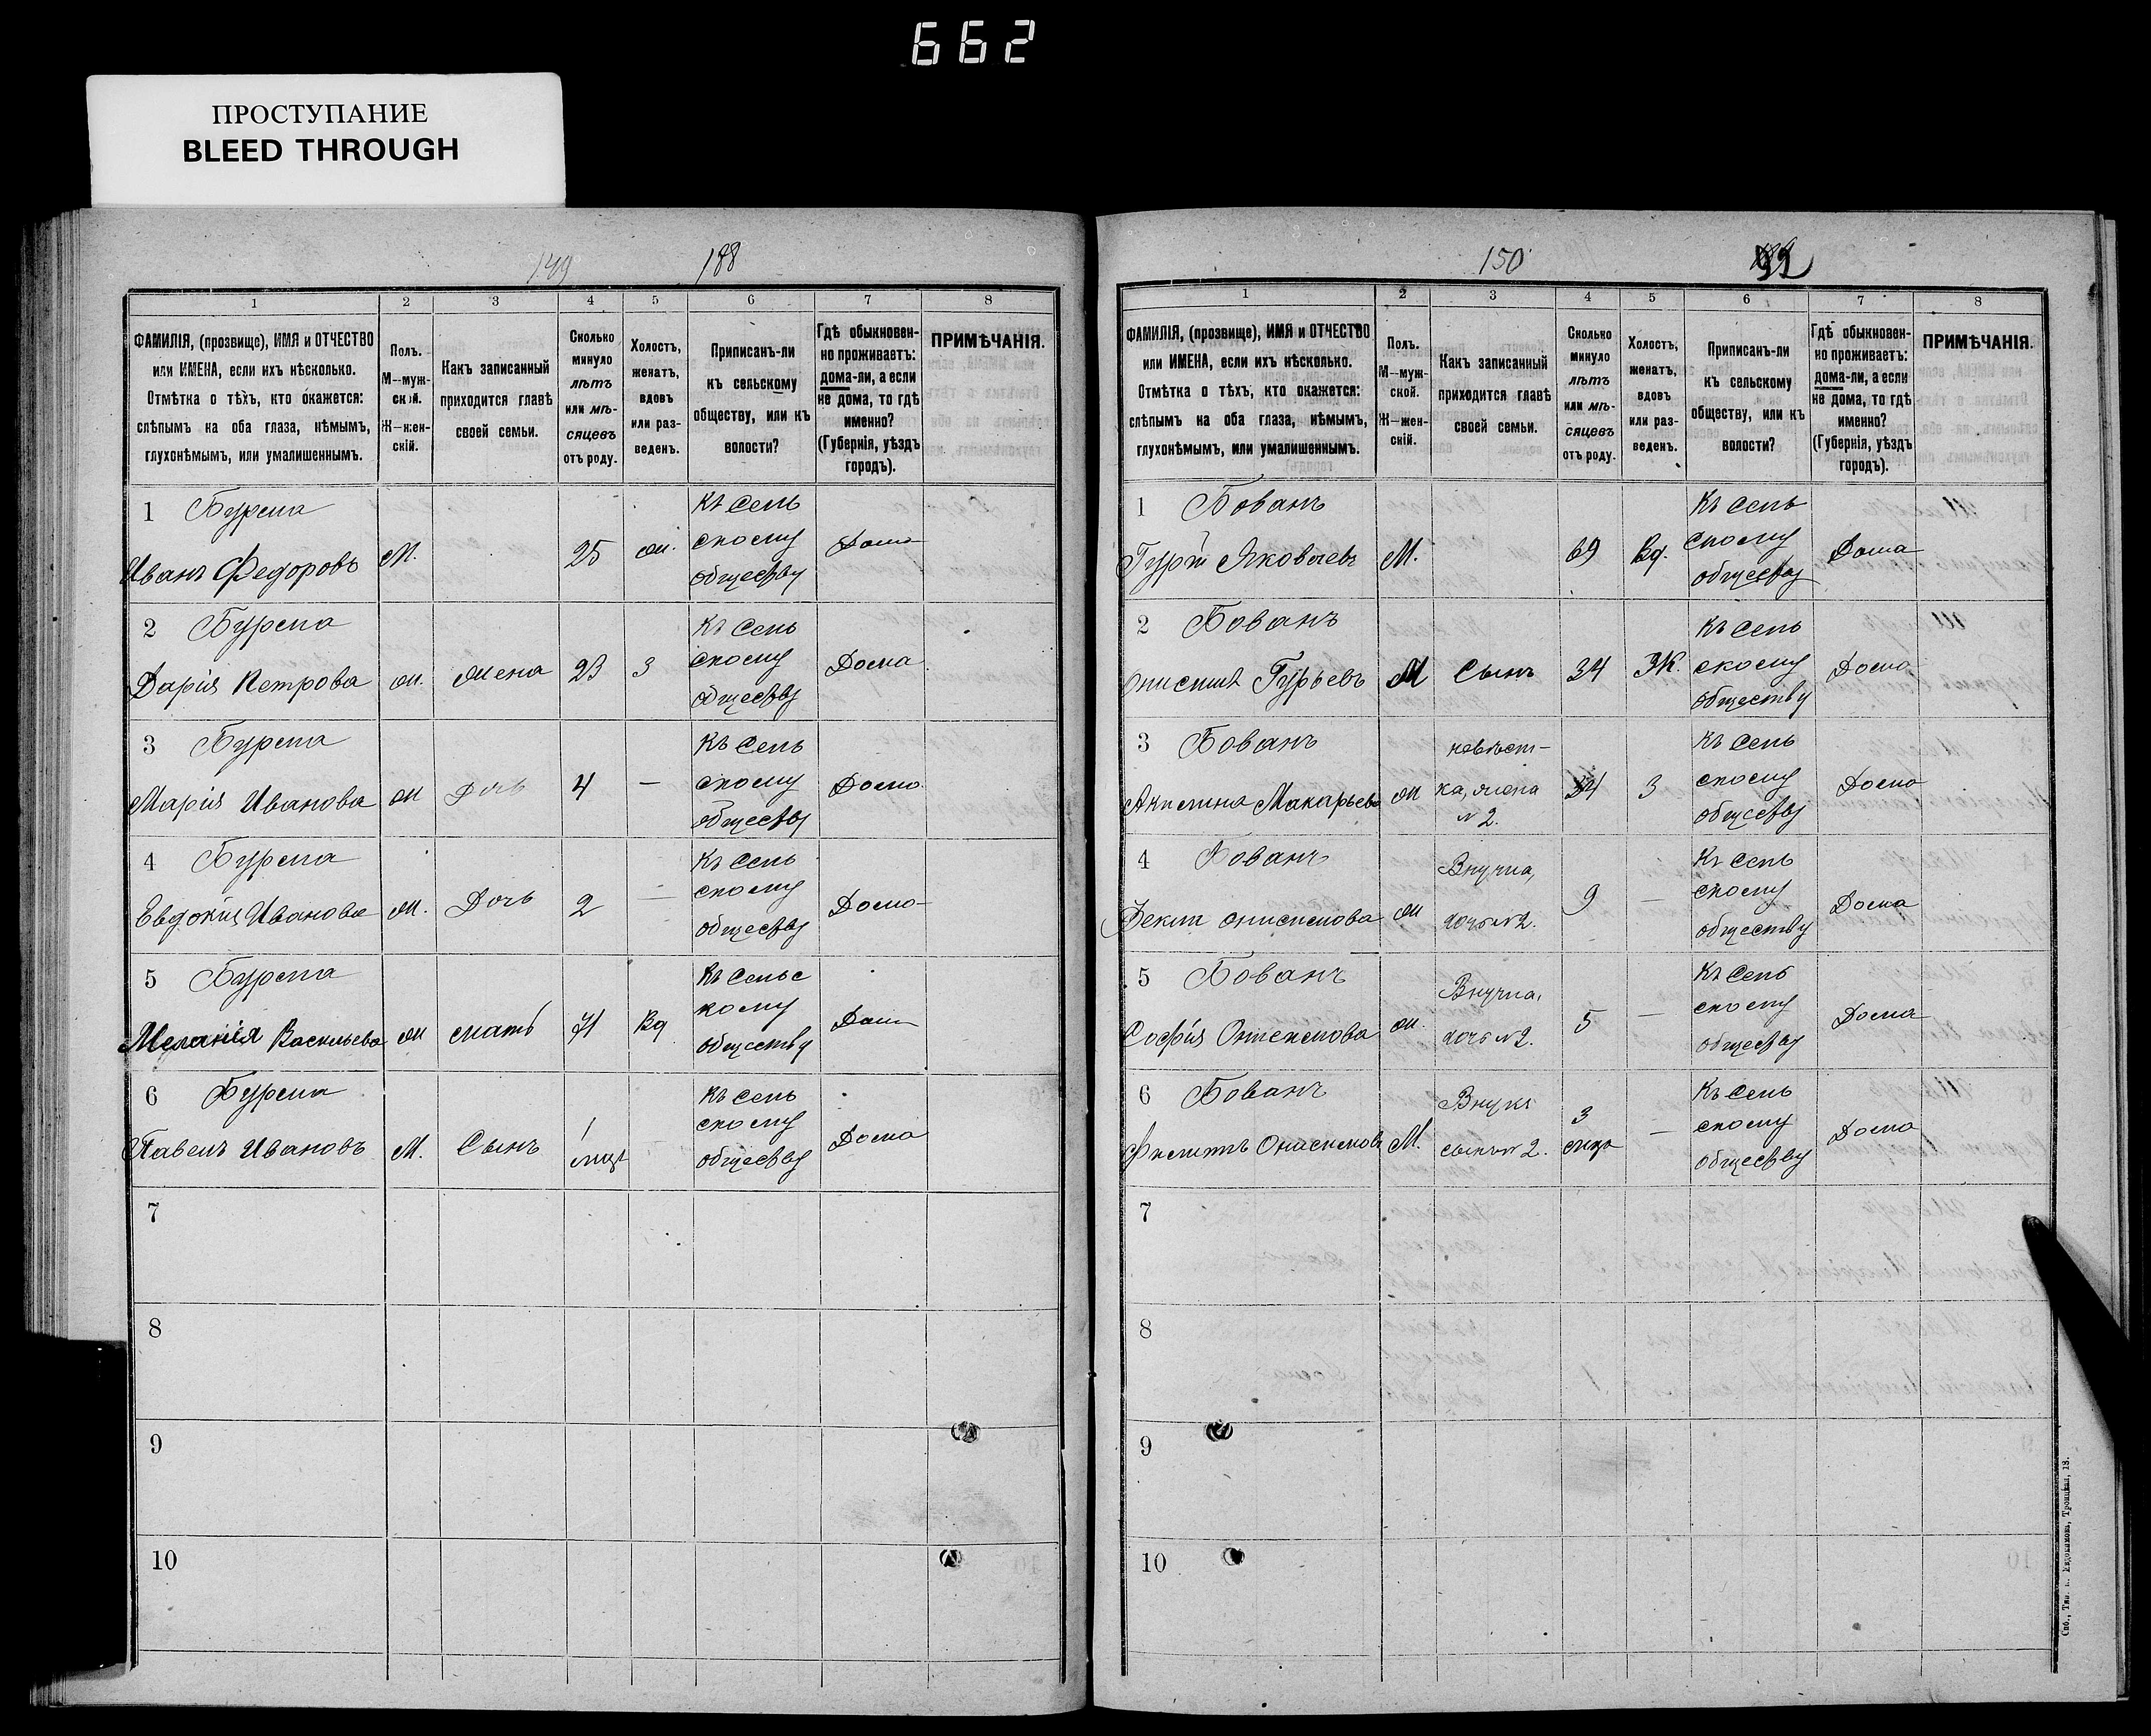 662
ПРОСТУПАНИЕ
BLEED THROUGH
149 188
1 2 3 4 5 6 7 8
ФАМИЛІЯ, (прозвище), ИМЯ и ОТЧЕСТВО
или ИМЕНА, если ихъ нѣсколько.
Отмѣтка о тѣхъ, кто окажется:
слѣпымъ на оба глаза, нѣмымъ,
глухонѣмымъ, или умалишеннымъ.
Полъ.
М—муж-
ской.
Ж—жен-
скій.
Какъ записанный
приходится главѣ
своей семьи.
Сколько
минуло
лѣтъ
или мѣ-
сяцевъ
отъ роду.
Холостъ,
женатъ,
вдовъ
или раз-
веденъ.
Приписанъ-ли
къ сельскому
обществу, или къ
волости?
Гдѣ обыкновен-
но проживаетъ:
дома-ли, а если
не дома, то гдѣ
именно?
(Губернія, уѣздъ
городъ).
ПРИМѢЧАНІЯ.
1 Бурела
Иванъ Федоровъ М. 25 ж. Къ сель
скому
обществу Дома
2 Бурела
Дарія Петрова ж. жена 23 З Къ сель
скому
обществу Дома
3 Бурела
Марія Иванова ж Дочь 4 — Къ сель
скому
обществу Дома
4 Бурела
Евдокія Иванова ж. Дочь 2 — Къ сель
скому
обществу Дома
5 Бурела
Меланія Васильева ж мать 71 Вд Къ сельс
кому
обществу Дома
6 Бурела
Павелъ Ивановъ М. Сынъ 1
мця Къ сель
скому
обществу Дома
7
8
9
10
150
1 2 3 4 5 6 7 8
ФАМИЛІЯ, (прозвище), ИМЯ и ОТЧЕСТВО
или ИМЕНА, если ихъ нѣсколько.
Отмѣтка о тѣхъ, кто окажется:
слѣпымъ на оба глаза, нѣмымъ,
глухонѣмымъ, или умалишеннымъ.
Полъ.
М—муж-
ской.
Ж—жен-
скій.
Какъ записанный
приходится главѣ
своей семьи.
Сколько
минуло
лѣтъ
или мѣ-
сяцевъ
отъ роду.
Холостъ,
женатъ,
вдовъ
или раз-
веденъ.
Приписанъ-ли
къ сельскому
обществу, или къ
волости?
Гдѣ обыкновен-
но проживаетъ:
дома-ли, а если
не дома, то гдѣ
именно?
(Губернія, уѣздъ
городъ).
ПРИМѢЧАНІЯ.
1 Бованъ
Гурій Яковлевъ М. 69 Вд. Къ сель
скому
обществу Дома
2 Бованъ
Онисимъ Гурьевъ М Сынъ 34 Ж. Къ сель
скому
обществу Дома
3 Бованъ
Акилина Макарьева ж невѣст-
ка, жена
№ 2. З Къ сель
скому
обществу Дома
4 Бованъ
Онисимова ж Внучка,
дочь № 2. 9 — Къ сель
скому
обществу Дома
5 Бованъ
Софія Онисимова ж. Внучка,
дочь № 2. 5 — Къ сель
скому
обществу Дома
6 Бованъ
Филиппъ Онисимовъ М. Внукъ
сынъ № 2. 3
мця — Къ сель
скому
обществу Дома
7
8
9
10